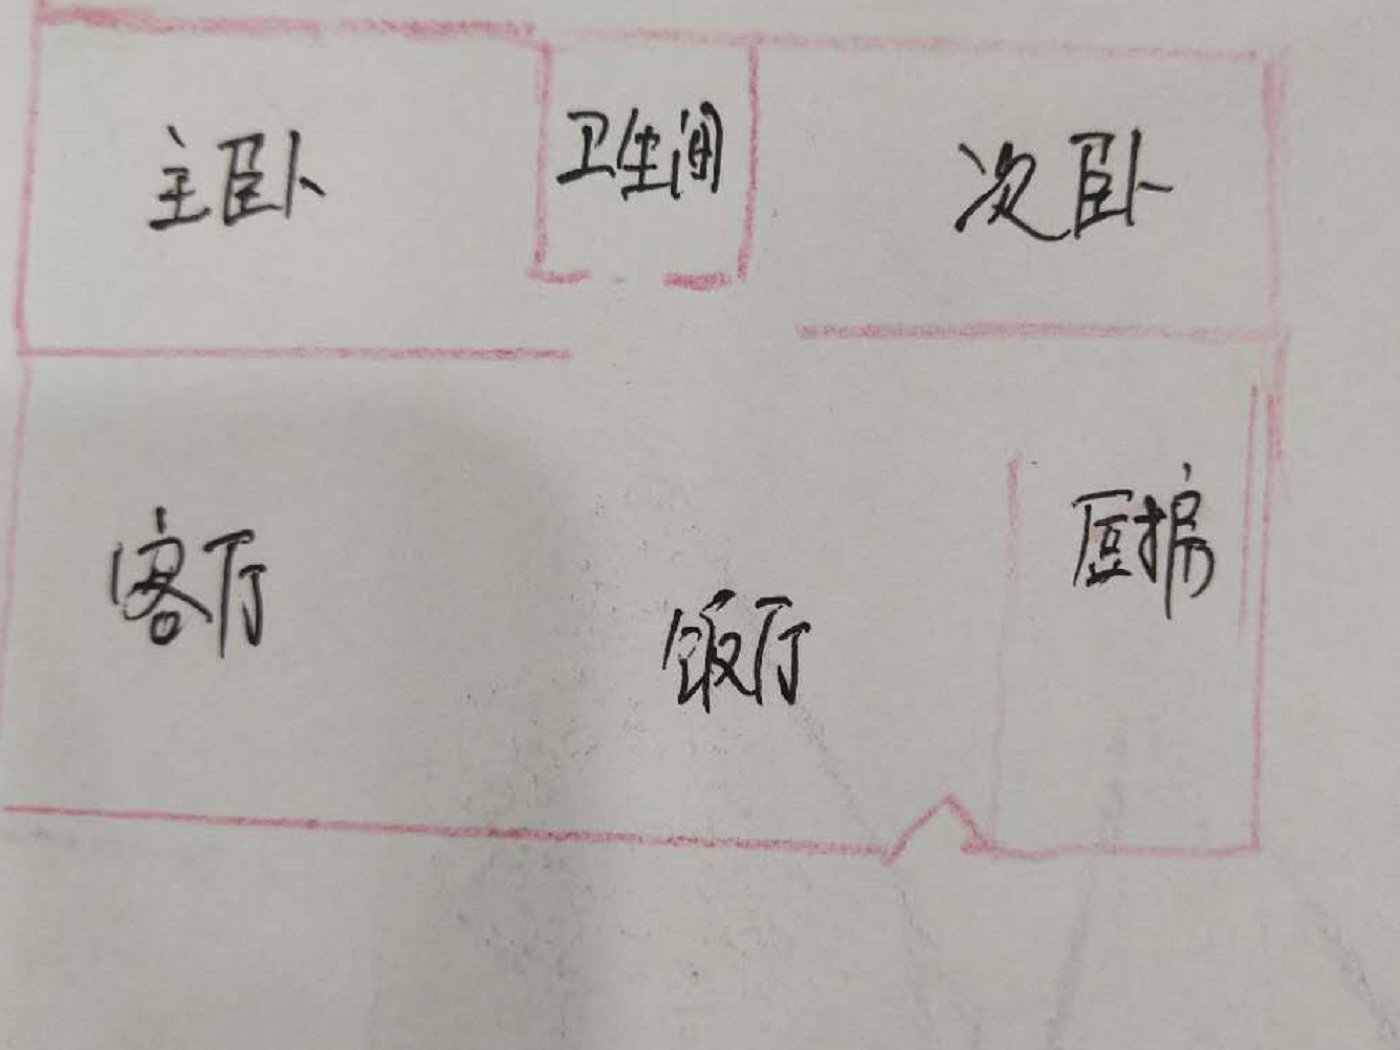 主卧
卫生间
次卧
客厅
饭厅
厨房